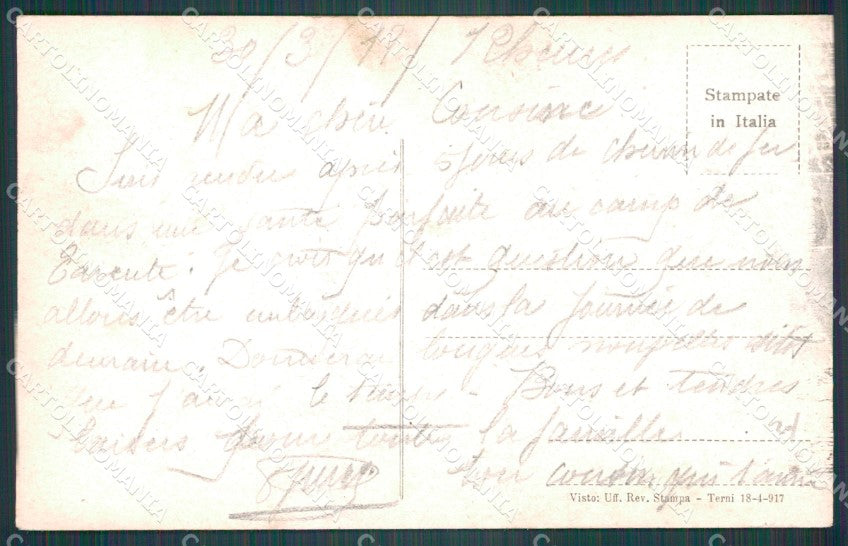 30/3/19/
Ma chère Cousine
Suis rendu après 5 jours de chemin de fer
dans une santé parfaite au camp de
Tarente. Je crois qu'il est question que nous
allons être embarqués dans la journée de
demain. Donnerai longues nouvelles sitôt
que j'aurai le temps - Bons et tendres
baisers pour toute la famille
ton cousin qui t'aime
Stampate
in Italia
Visto: Uff. Rev. Stampa - Terni 18-4-917
CARTOLINOMANIA